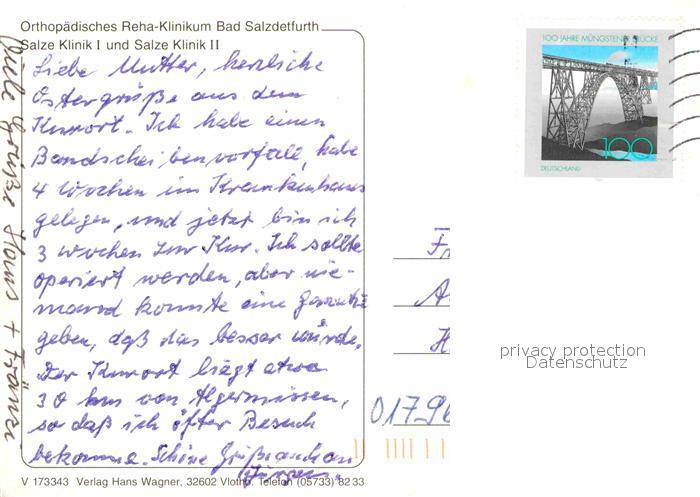 Orthopädisches Reha-Klinikum Bad Salzdetfurth
Salze Klinik I und Salze Klinik II
Liebe Mutter, herzliche
Ostergrüße aus dem
Kurort. Ich habe einen
Bandscheibenvorfall, habe
4 Wochen im Krankenhaus
gelegen, und jetzt bin ich
3 Wochen zur Kur. Ich sollte
operiert werden, aber nie-
mand konnte eine Garantie
geben, daß das besser würde.
Der Kurort liegt etwa
30 km von Algermissen,
so daß ich öfter Besuch
bekomme. Schöne Grüße auch an
Jürgen.
Viele Grüße Hans + Fränzi
V 173343 Verlag Hans Wagner, 32602 Vlotho, Telefon (05733) 82 33
100 JAHRE MÜNGSTENER BRÜCKE
100
DEUTSCHLAND
Fr
A
H
0179
privacy protection
Datenschutz